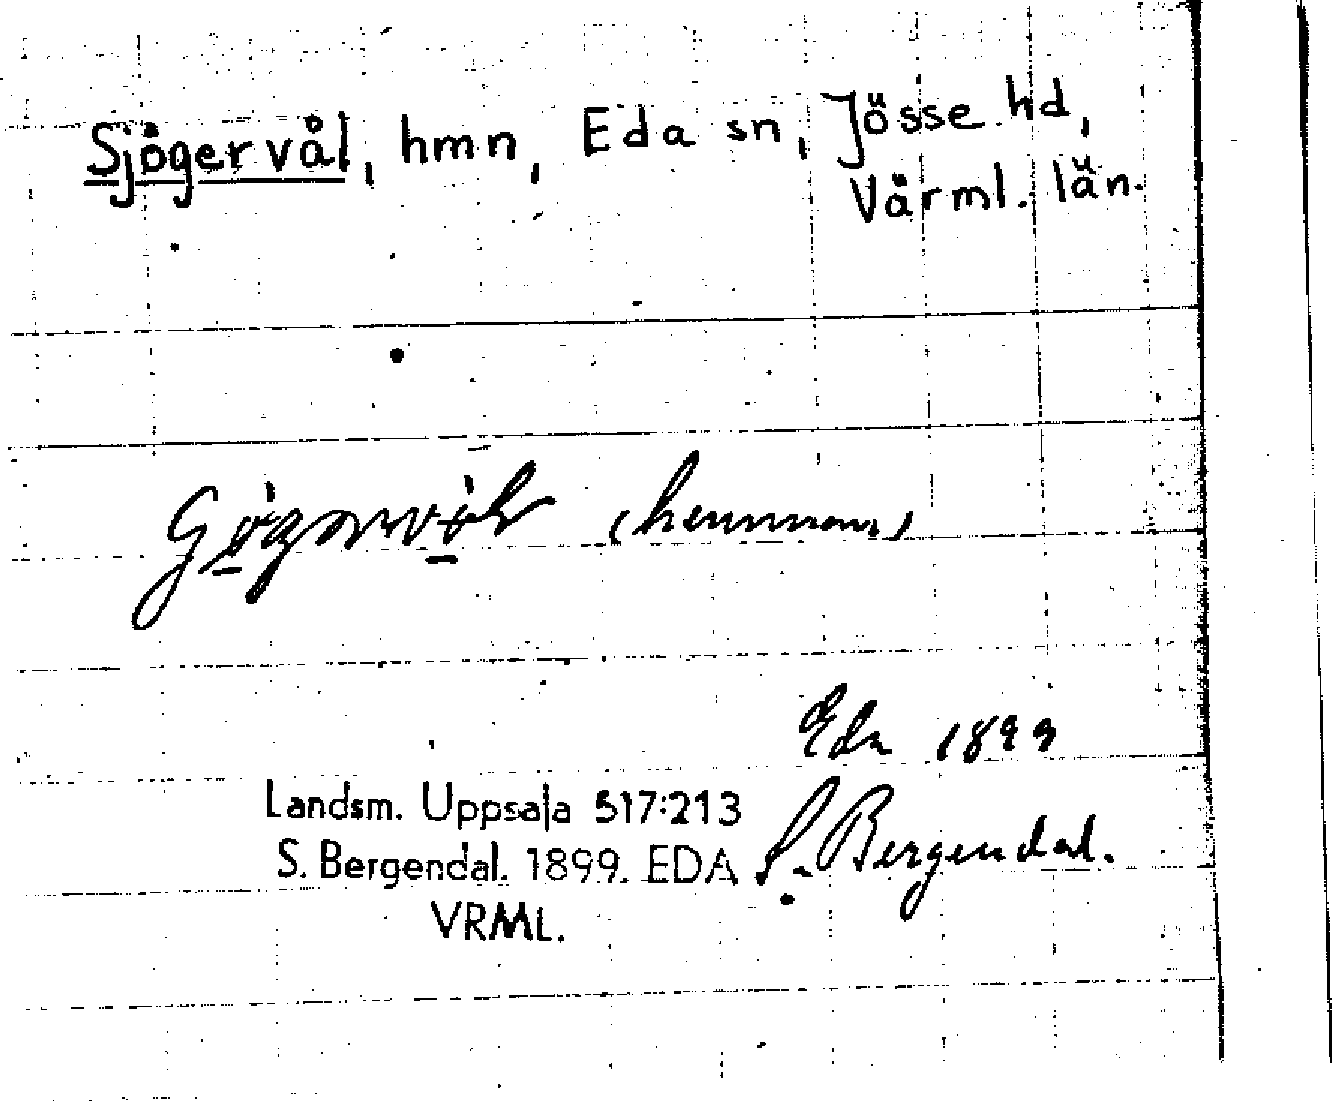 Sjögervål, hmn, Eda sn, Jösse hd,
Värml. län.
(hemman)
Eda 1899
Landsm. Uppsala 517:213
S. Bergendal.
S. Bergendal. 1899. EDA
VRML.